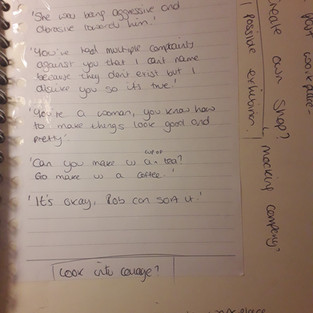 'She was being aggressive and
abrasive towards him.'
'You've had multiple complaints
against you that I can't name
because they dont exist but I
dislike you so its true.'
'You're a woman, you know how
to make things look good and
pretty.'
'Can you make us a tea?
Go make us a coffee.'
'It's okay, Rob can sort it.'
Look into collage?
create own shop?
possible exhibition?
mocking company?
post workplace